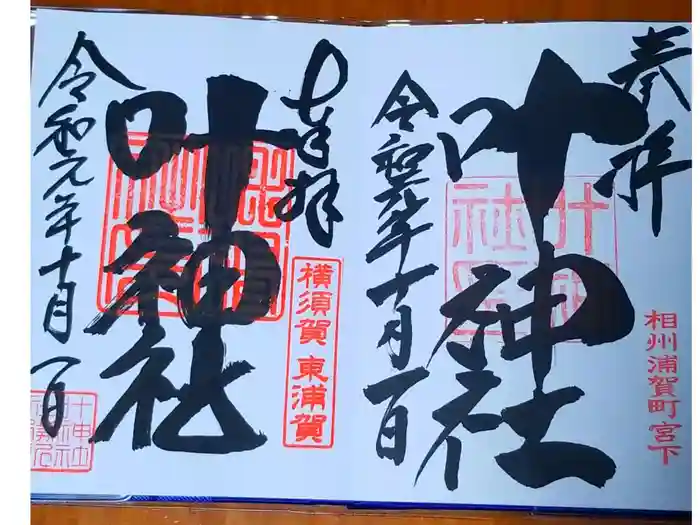 奉拝
叶神社
相州浦賀町宮下
令和元年十月一日
奉拝
叶神社
横須賀 東浦賀
令和元年十月一日